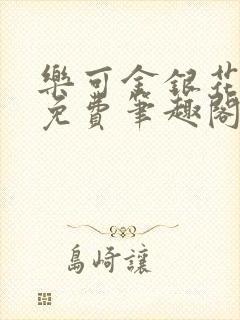 樂可金銀花
免費筆趣閣
島崎讓